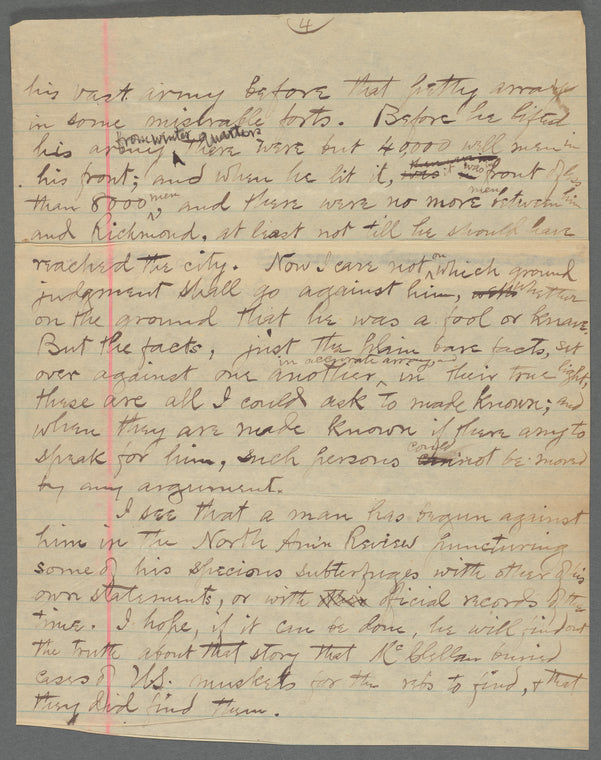 4
his vast army before that petty array
in some miserable forts. Before he lifted
from winter quarters
his army there were but 40,000 men in
his front; and when he lit it, was in front of less
than 8000 men, and there were no more men between him
and Richmond, at least not till he should have
reached the city. Now I care not on which ground
judgment shall go against him, whether
on the ground that he was a fool or knave.
But the facts, just the plain bare facts, set
over against one another in accurate array, and in their true light,
these are all I could ask to made known; and
when they are made known if there any to
speak for him, such persons could not be moved
by any argument.
I see that a man has begun against
him in the North Am'n Review puncturing
some of his specious subterfuges with other of his
own statements, or with oficial records of the
time. I hope, if it can be done, he will find out
the truth about that story that McClellan buried
cases of U.S. muskets for the rebs to find, & that
they did find them.